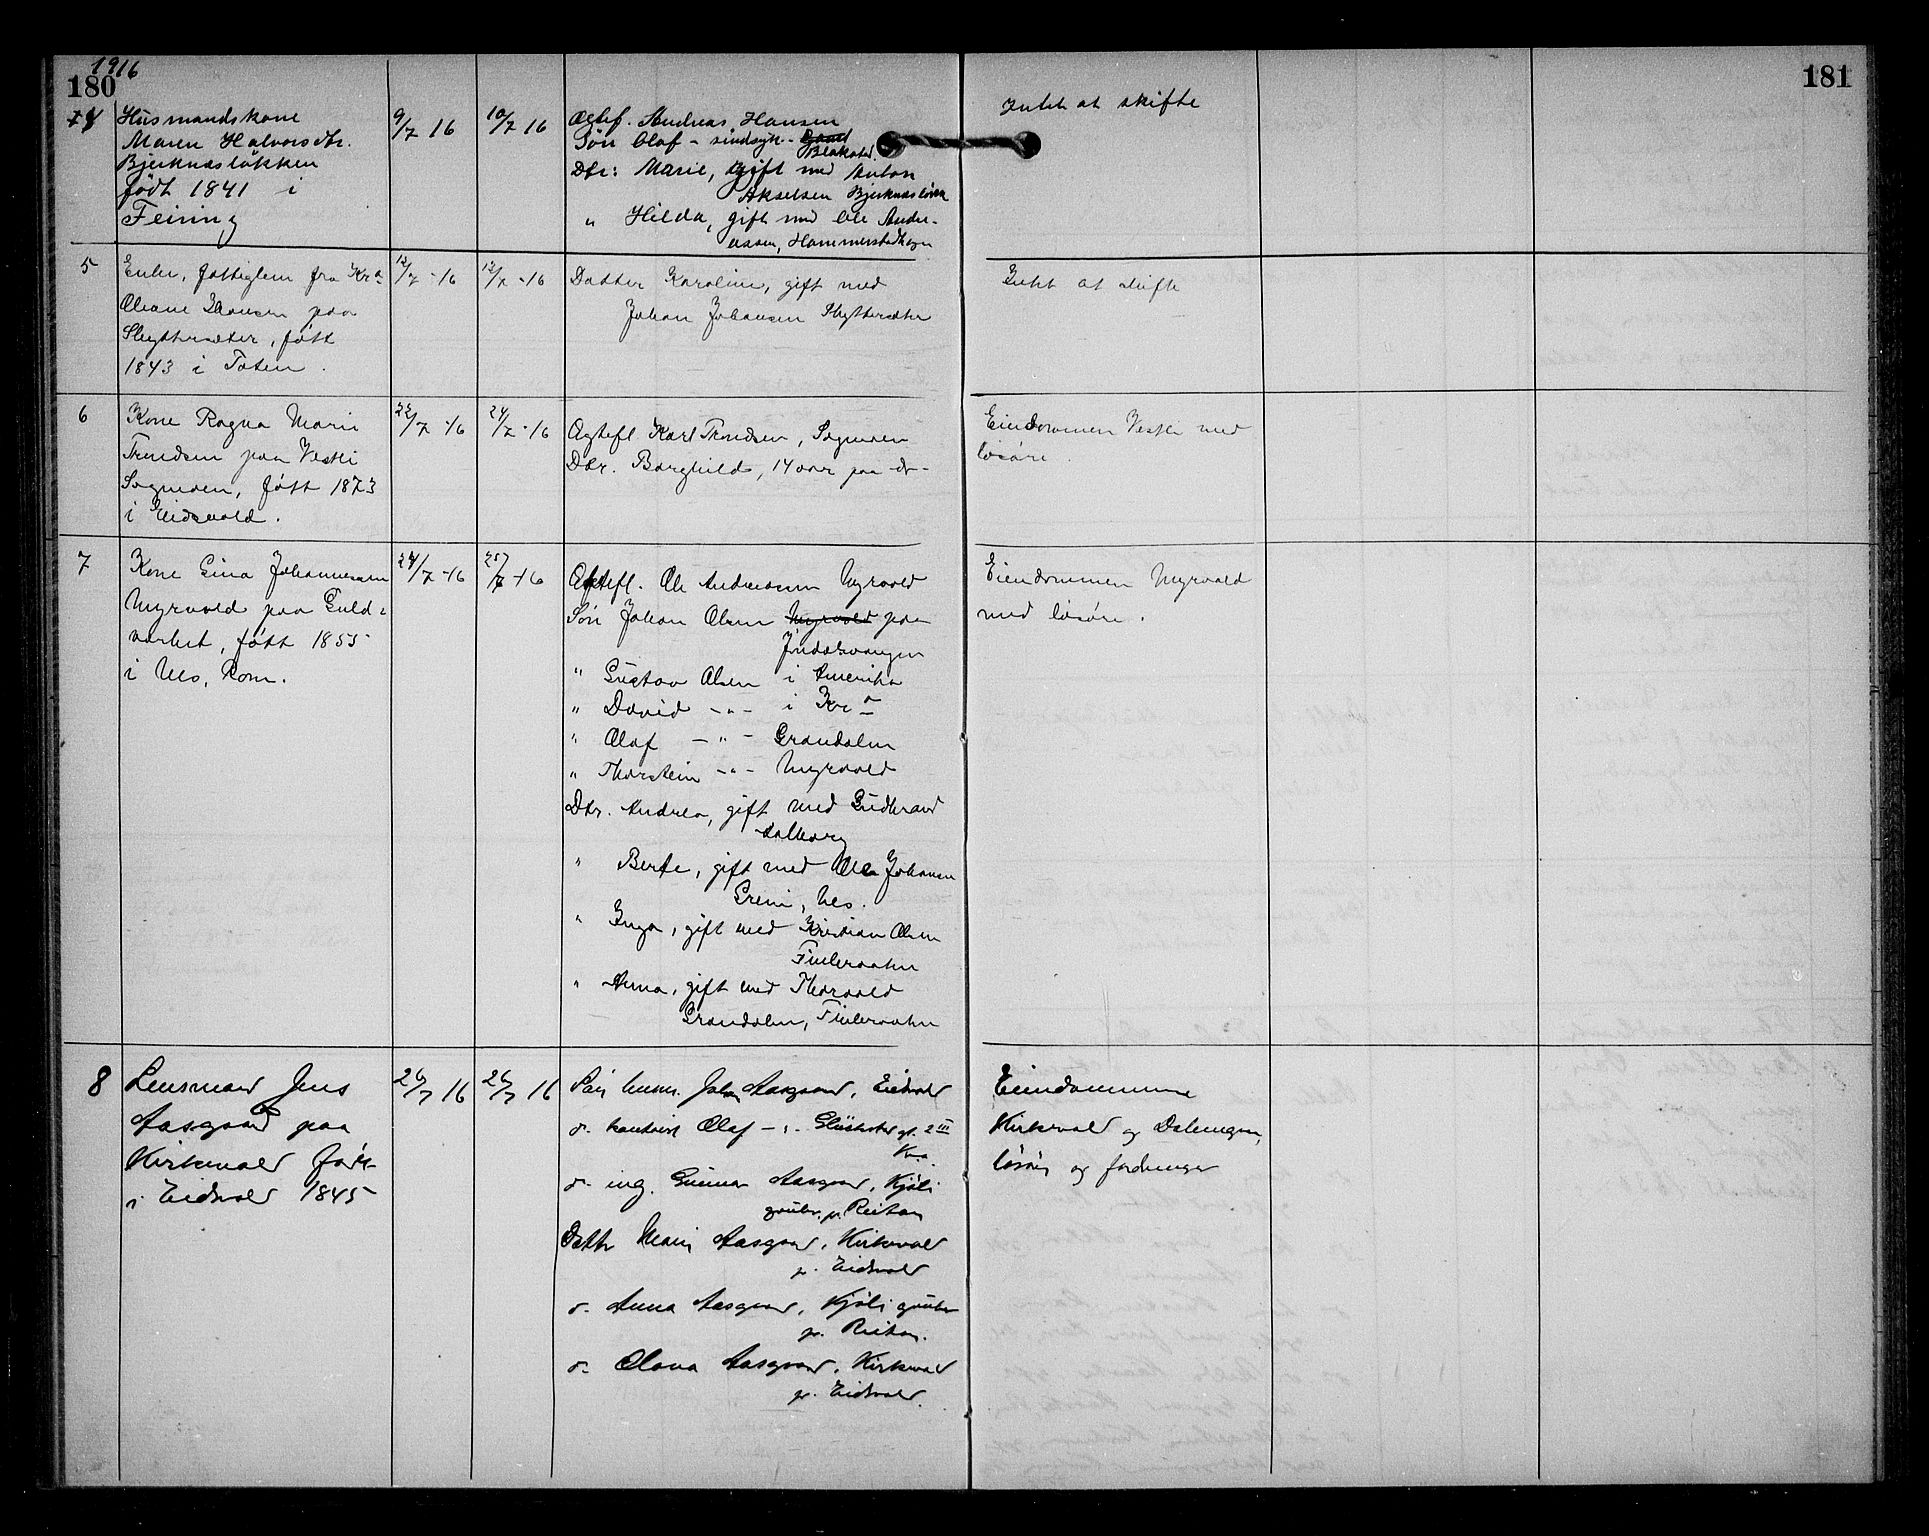 1916
180
181
4
Husmandskone
Maren Halvorsdtr.
Bjerknesløkken
født 1841 i
Feiring
9/7 16
10/7 16
Ægtef. Andreas Hansen
Søn Olaf – sindsyk –
Dtr: Marie, gift med Anton
Akselsen Bjerknesløkken
" Hilda, gift med Ole Ander-
assen, Hammerstadhagen
Intet at skifte
5
Enke, fattiglem fra Kr.a
Oleane Hansen paa
Slyttersæter, født
1843 i Toten.
12/7 -16
12/7 -16
Datter Karoline, gift med
Johan Johansen Slyttersæter
Intet at skifte
6
Kone Ragna Marie
Trondsen paa Vestli
Sogmoen, født 1873
i Eidsvold.
22/7 -16
24/7 -16
Ægtefl Karl Trondsen, Sogmoen
Dtr. Borghild, 14 aar paa do-
Eiendommen Vestli med
løsøre.
7
Kone Gina Johannesen
Myrvold paa Guld-
verket, født 1855
i Nes, Rom.
24/7 -16
25/7 -16
Ægtefl. Ole Andreassen Myrvold
Søn Johan Olsen Myrvold paa
" Gustav Olsen i Amerika
" David -"- i Kr.a
" Olaf -"- Grandalen
" Thorstein -"- Myrvold
Dtr. Andrea, gift med Gudbrand
Dalborg
" Berte, gift med Ole Johansen
Greni, Nes.
" Inga, gift med Kristian Olsen
" Anna, gift med Thorvald
Grandalen,
Eiendommen Myrvold
med løsøre.
8
Lensmand Jens
Aasgaard paa
Kirkevold født
i Eidsvold 1845
26/7 16
26/7 16
Søn Johan Aasgaard, Eidsvold
d. kontorist Olaf -"- gt. 2 III
Kr.a.
d. ing. Gunnar Aasgaard, Kjøli
gruber p. Reitan
Datter Marie Aasgaard, Kirkevold
p. Eidsvold
d. Anna Aasgaard, Kjøli gruber
p. Reitan.
d. Olava Aasgaard, Kirkevold
p. Eidsvold.
Eiendommene
Kirkevold og Dalengen,
løsøre og fordringer